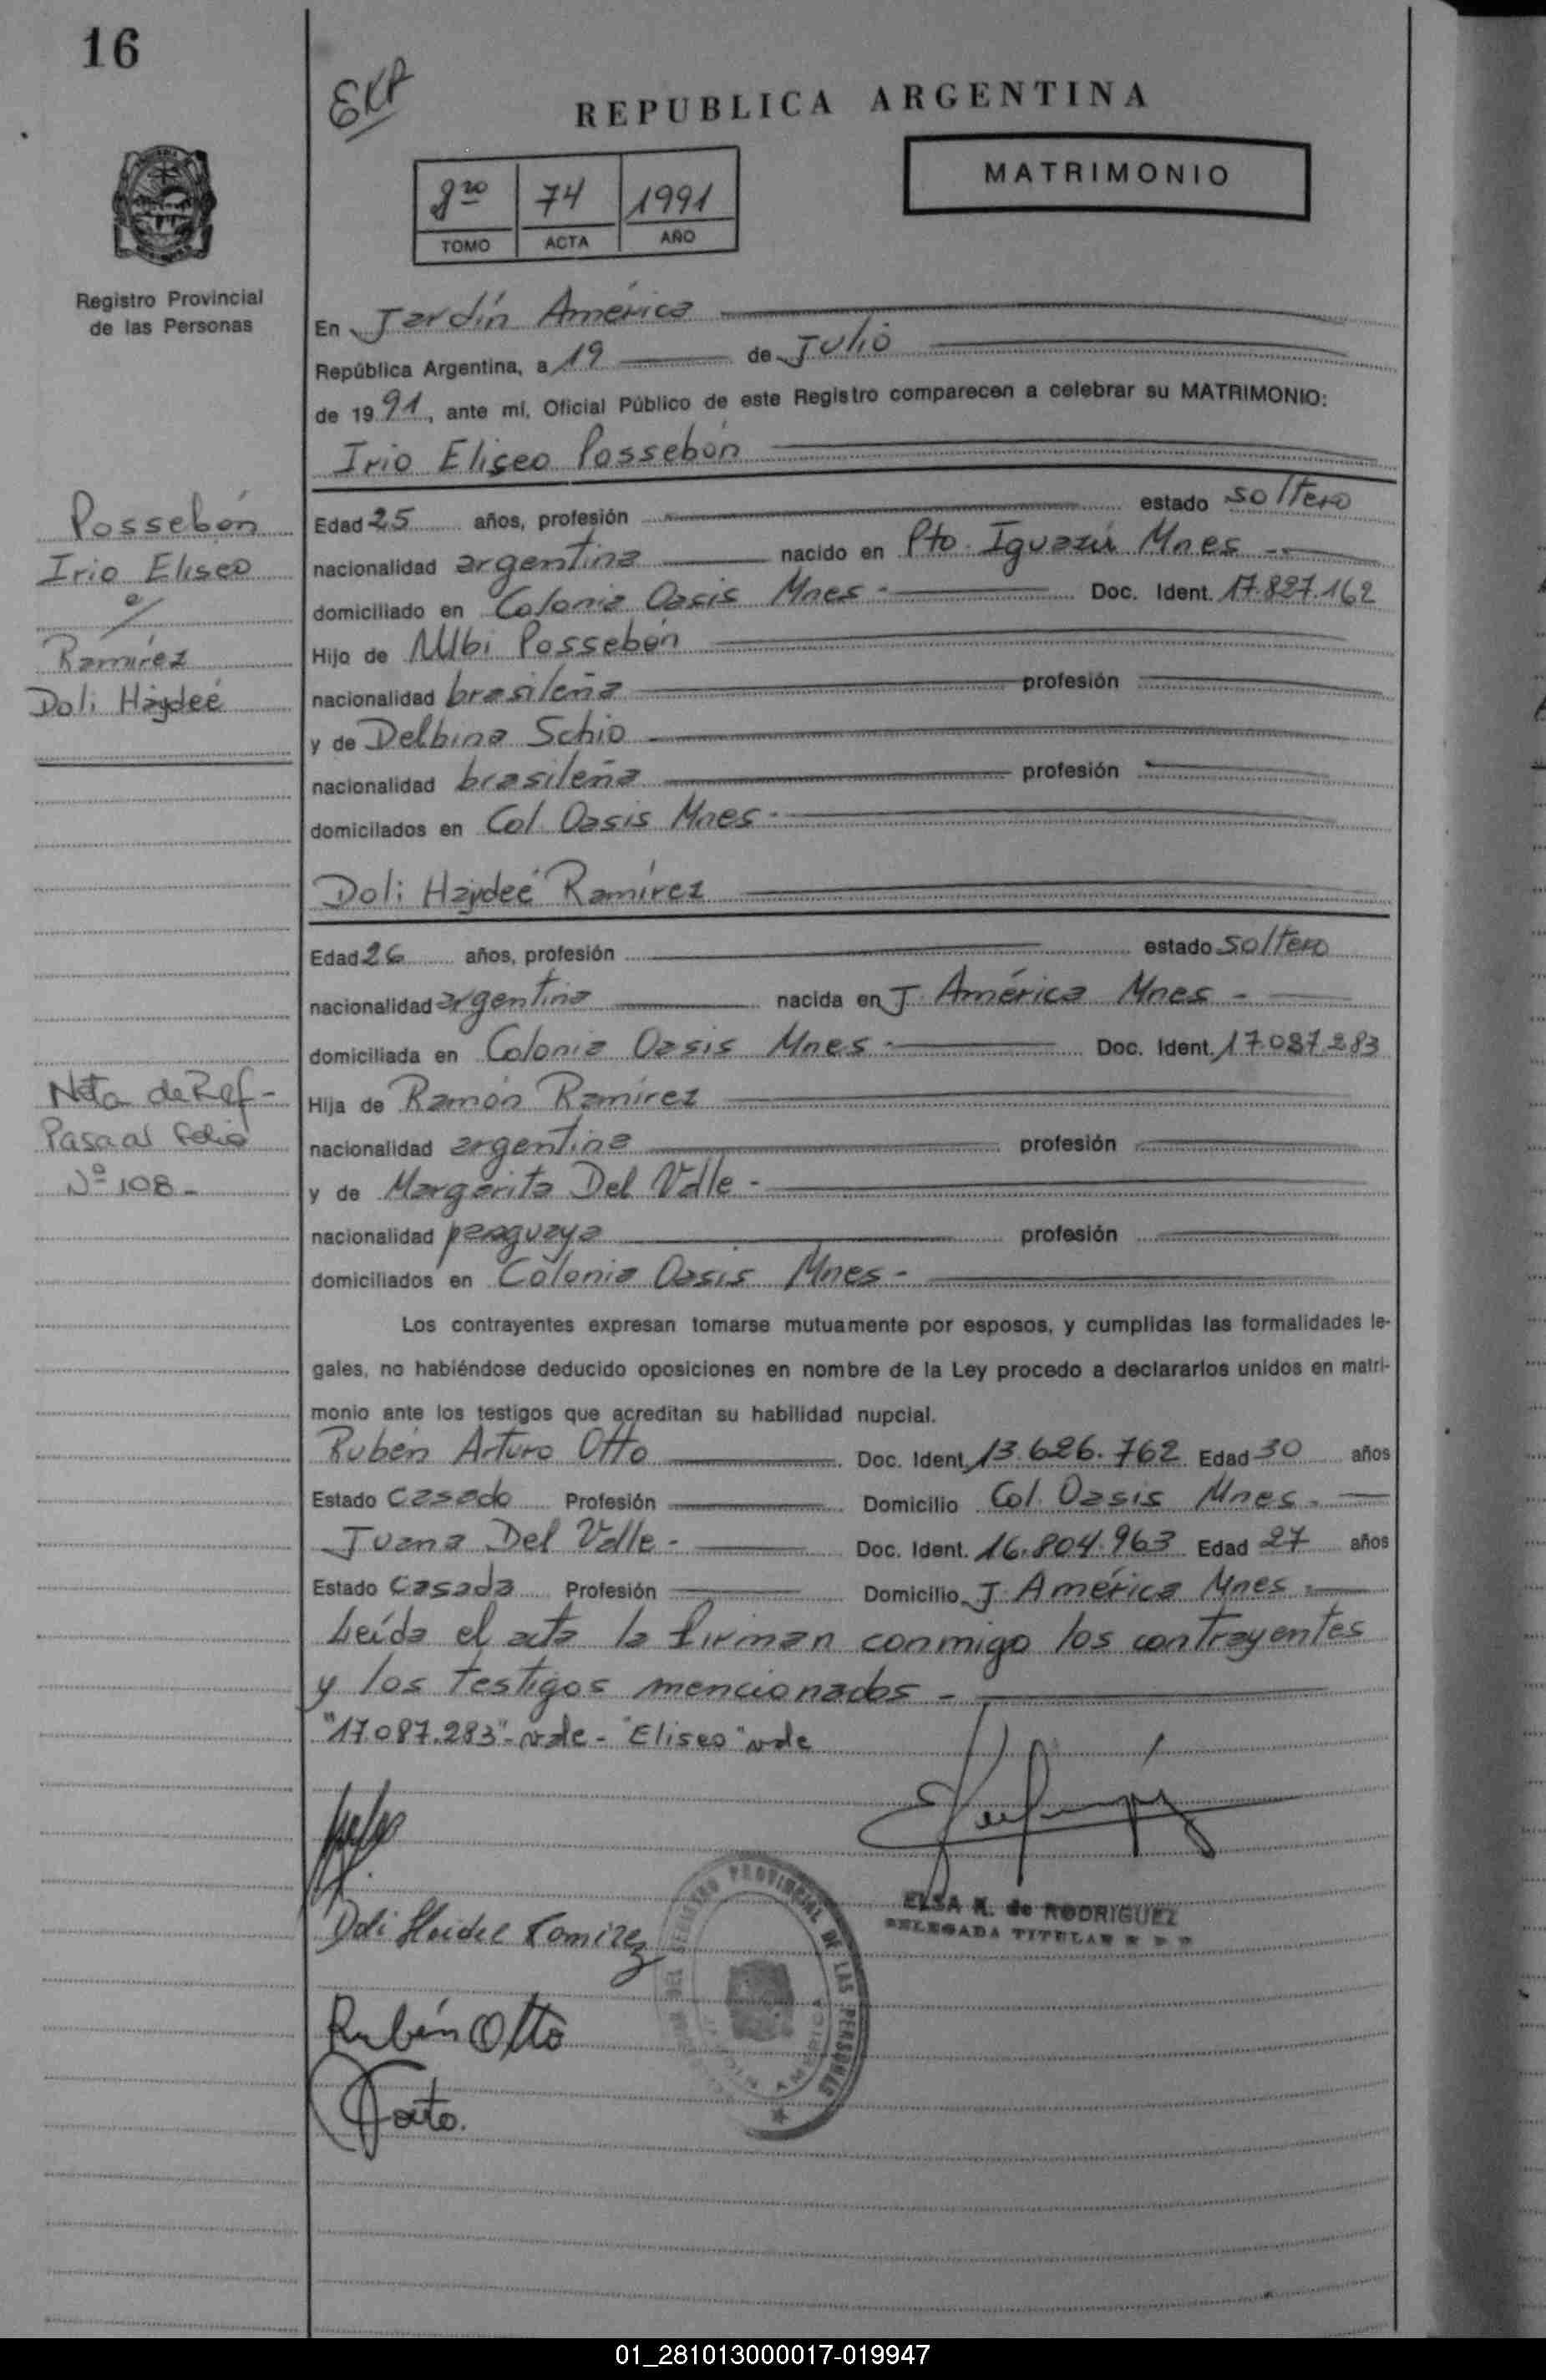 16
EXP
REPUBLICA ARGENTINA
MATRIMONIO
8vo 74 1991
TOMO ACTA AÑO
Registro Provincial
de las Personas
En Jardín América
República Argentina, a 19 de Julio
de 1991, ante mí, Oficial Público de este Registro comparecen a celebrar su MATRIMONIO:
Irio Eliseo Possebón
Possebón
Irio Eliseo
c/
Ramírez
Doli Haydeé
Edad 25 años, profesión estado soltero
nacionalidad argentina nacido en Pto. Iguazú Mnes -
domiciliado en Colonia Oasis Mnes - Doc. Ident. 17.827.162
Hijo de Possebón
nacionalidad brasileña profesión
y de Delbina Schio
nacionalidad brasileña profesión
domicilados en Col. Oasis Mnes -
Doli Haydeé Ramírez
Edad 26 años, profesión estado soltero
nacionalidad argentina nacida en J. América Mnes -
domiciliada en Colonia Oasis Mnes - Doc. Ident. 17.087.283
Nota de Ref -
Pasa al folio
Nº 108 -
Hija de Ramón Ramírez
nacionalidad argentina profesión
y de Margarita Del Valle -
nacionalidad paraguaya profesión
domiciliados en Colonia Oasis Mnes -
Los contrayentes expresan tomarse mutuamente por esposos, y cumplidas las formalidades le-
gales, no habiéndose deducido oposiciones en nombre de la Ley procedo a declararlos unidos en matri-
monio ante los testigos que acreditan su habilidad nupcial.
Rubén Arturo Otto Doc. Ident. 13.626.762 Edad 30 años
Estado casado Profesión Domicilio Col. Oasis Mnes -
Juana Del Valle - Doc. Ident. 16.804.963 Edad 27 años
Estado casada Profesión Domicilio J. América Mnes -
Leída el acta la firman conmigo los contrayentes
y los testigos mencionados -
"17.087.283" - vale - "Eliseo" vale
ELSA K. de RODRIGUEZ
DELEGADA TITULAR R P P
Doli Haidee Ramirez
REGISTRO PROVINCIAL DE LAS PERSONAS
JARDIN AMERICA
Rubén Otto
01_281013000017-019947